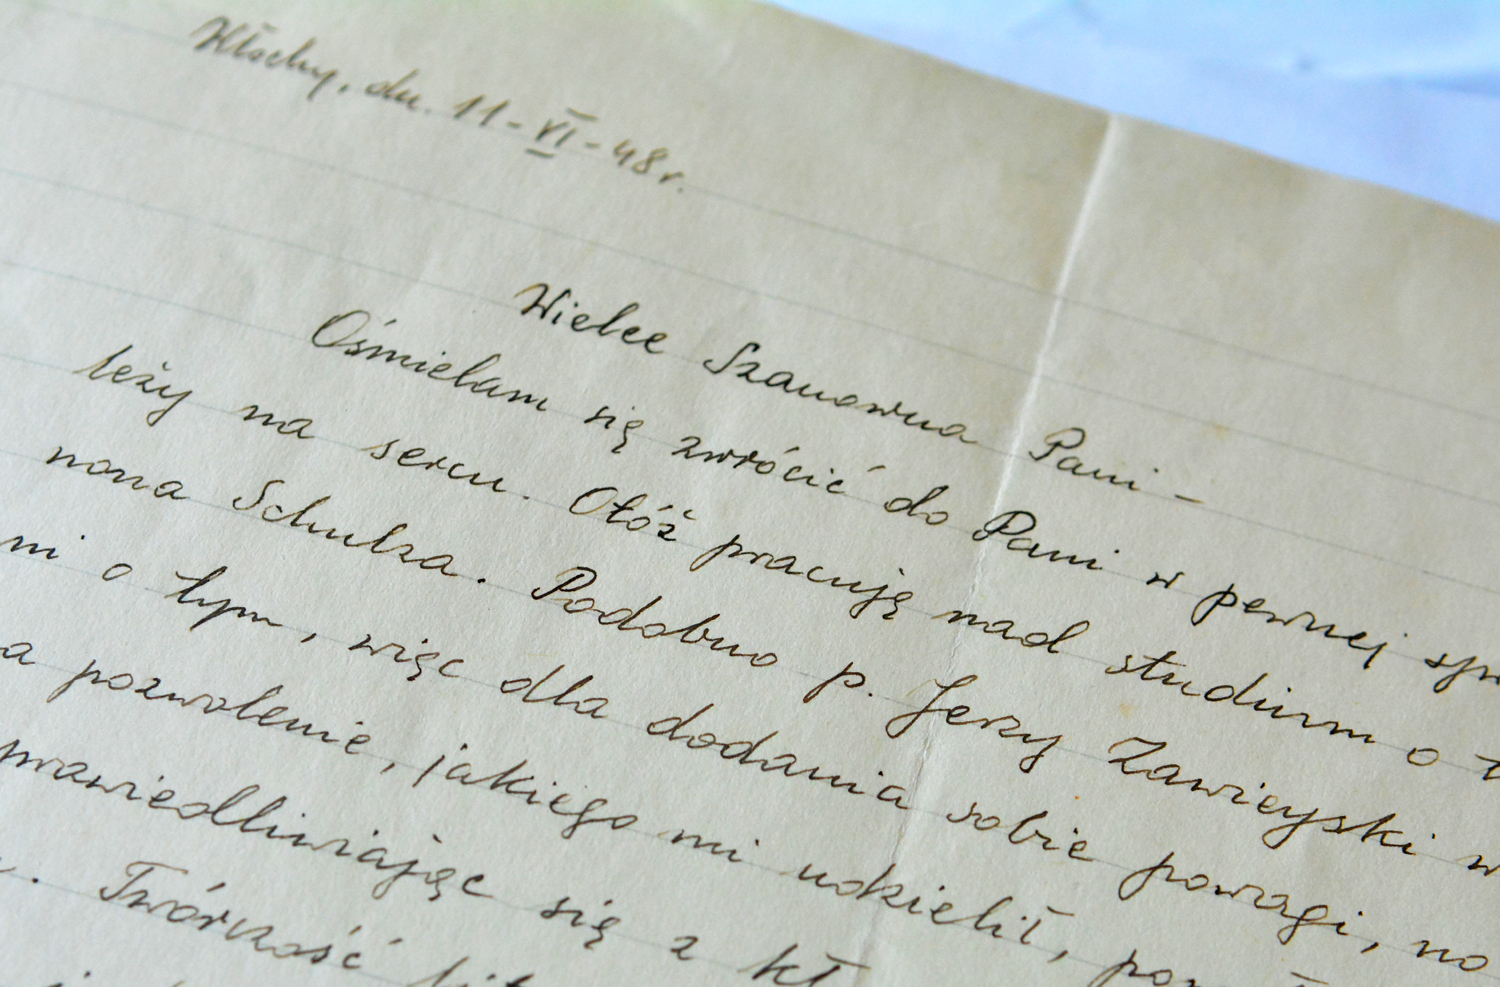 Włochy, dn. 11-VI-48 r.
Wielce Szanowna Pani -
Ośmielam się zwrócić do Pani w pewnej spr
leży na sercu. Otóż pracuję nad studium o t
nona Schulza. Podobno p. Jerzy Zawieyski w
ni o tym, więc dla dodania sobie powagi, no
a pozwolenie, jakiego mi udzielił,
prawiedliwiając się z kł
. Twórczość lit